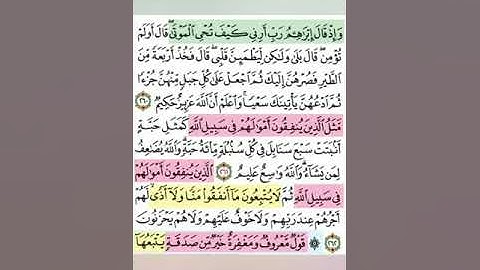 وَإِذْ قَالَ إِبْرَٰهِـۧمُ رَبِّ أَرِنِى كَيْفَ تُحْىِ ٱلْمَوْتَىٰ ۖ قَالَ أَوَلَمْ
تُؤْمِن ۖ قَالَ بَلَىٰ وَلَـٰكِن لِّيَطْمَئِنَّ قَلْبِى ۖ قَالَ فَخُذْ أَرْبَعَةً مِّنَ
ٱلطَّيْرِ فَصُرْهُنَّ إِلَيْكَ ثُمَّ ٱجْعَلْ عَلَىٰ كُلِّ جَبَلٍ مِّنْهُنَّ جُزْءًا
ثُمَّ ٱدْعُهُنَّ يَأْتِينَكَ سَعْيًا ۚ وَٱعْلَمْ أَنَّ ٱللَّهَ عَزِيزٌ حَكِيمٌ ٢٦٠
مَّثَلُ ٱلَّذِينَ يُنفِقُونَ أَمْوَٰلَهُمْ فِى سَبِيلِ ٱللَّهِ كَمَثَلِ حَبَّةٍ
أَنۢبَتَتْ سَبْعَ سَنَابِلَ فِى كُلِّ سُنۢبُلَةٍ مِّا۟ئَةُ حَبَّةٍ ۗ وَٱللَّهُ يُضَـٰعِفُ
لِمَن يَشَآءُ ۗ وَٱللَّهُ وَٰسِعٌ عَلِيمٌ ٢٦١ ٱلَّذِينَ يُنفِقُونَ أَمْوَٰلَهُمْ
فِى سَبِيلِ ٱللَّهِ ثُمَّ لَا يُتْبِعُونَ مَآ أَنفَقُوا۟ مَنًّا وَلَآ أَذًى ۙ لَّهُمْ
أَجْرُهُمْ عِندَ رَبِّهِمْ وَلَا خَوْفٌ عَلَيْهِمْ وَلَا هُمْ يَحْزَنُونَ
٢٦٢ ۞ قَوْلٌ مَّعْرُوفٌ وَمَغْفِرَةٌ خَيْرٌ مِّن صَدَقَةٍ يَتْبَعُهَآ